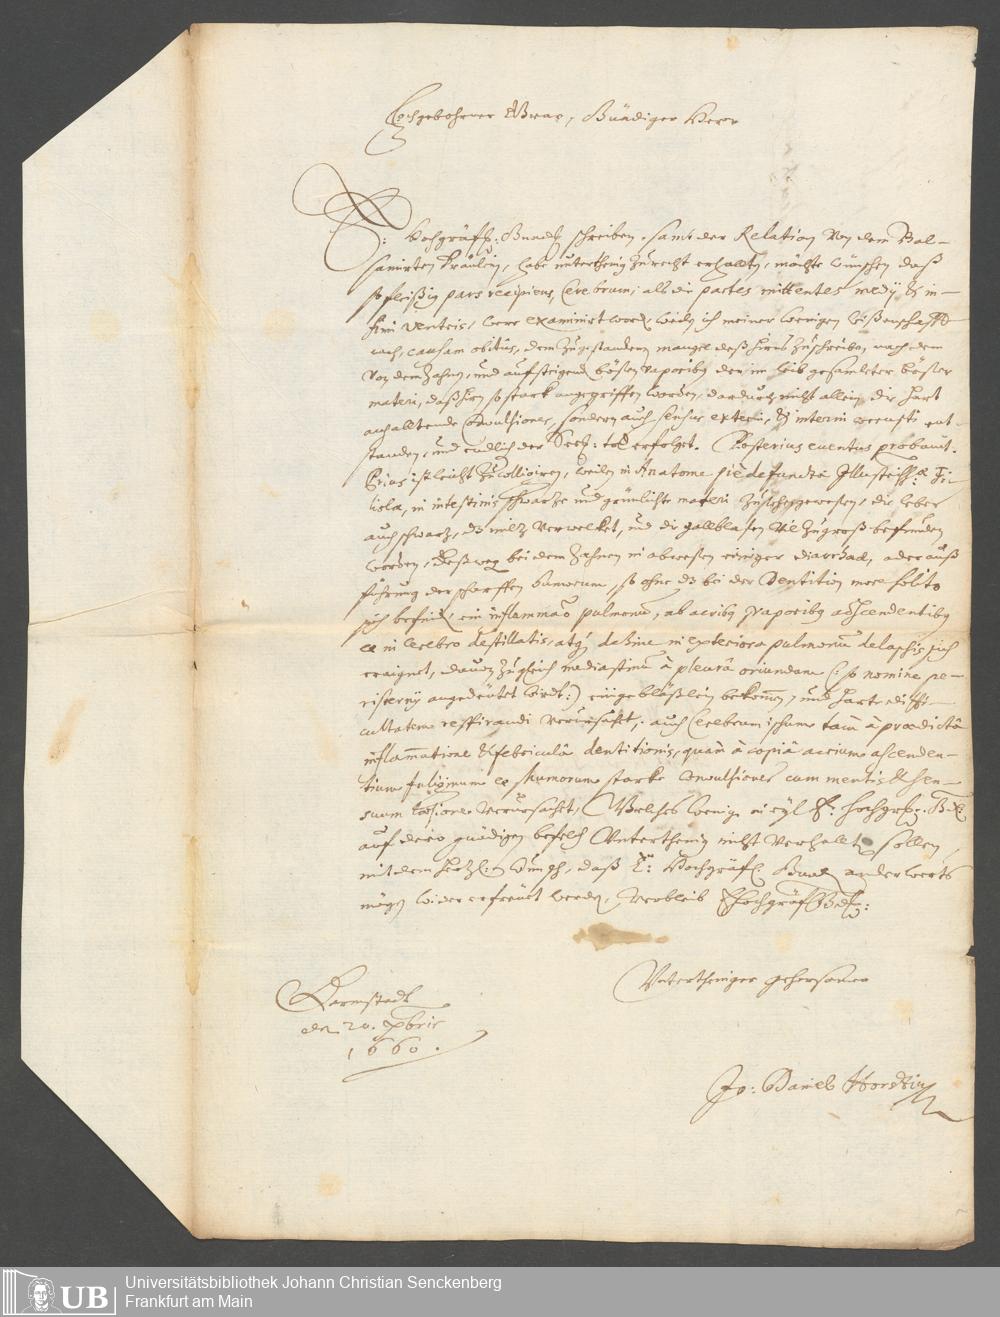 Hochgebohrner Grav, Gnädiger Herr
E: Hochgräffl: Gnad schreiben, sambt der Relation von dem Bal-
samirten Fräulein, habe unterthenig zu recht erhalten, möchte wünschen daß
so fleißig pars recipiens, Cerebrum, als die partes mittentes medij & in-
fimi ventris, were examinirt word, weiln ich meiner wenigen wißenschafft
nach, causam obitus, dem zugestandenen mangel deß Hirns zuschreibe, nach dem
von dem Zahnen, und aufsteigend bösen vaporibus der im leib gesamleter böser
materi, daß Hirn so stark angegriffen worden, dardurch nicht allein die hart
anhaltende Convulsiones, sondern auch sensus externi, & interni
standen, und endlich der Seel: tod erfolget. Posterius eventus probavit.
Prius ist leicht zu colligiren, weilen in Anatome pie defunctae Illustriss: Fi-
liolae, in intestinis schwartze und grünlichte materi gewesen, die leber
auch schwartz, dz miltz verwelket, und die gallblasen viel zu groß befunden
worden, deßweg bei dem Zahnen in abwesen einiger diarrhaeae, oder auß
führung der scharffen humorum, so ohne dz bei der Dentition more solito
sich befind, ein inflammatio pulmonum, ab acribus vaporibus adscendentibus
ex in Cerebro destillatis, atque deßine in exteriora pulmonum delapsis sich
eraignet, davon zugleich mediastinum à pleurâ oriundum (: so nomine pe-
risternij angedeutet wirdt:) einige bläßlein bekommen, und harte diffi-
cultatem respirandi verursacht, auch Cerebrum ipsum tam à praedictâ
inflammatione & febriculâ dentitionis, quam à copiâ acrium ascenden-
tium fuliginum & humorum starke Convulsiones cum mentis & sen-
suum verursacht, Welches wenige in eyl E: Hochgräfl: Gnd:
auf dero gnädigen befelch Unterthenig nicht verhalten sollen,
mit dem hertzl: Wunsch, daß E: Hochgräfl. Gnad anderwerts
mögen wider erfreuet werden, verbleib E Hochgräfl Gnd:
Untertheniger gehorsamer
Darmstadt
den 20. Xbris
1660.
Jo: Daniel Horstius
Universitätsbibliothek Johann Christian Senckenberg
Frankfurt am Main
UB